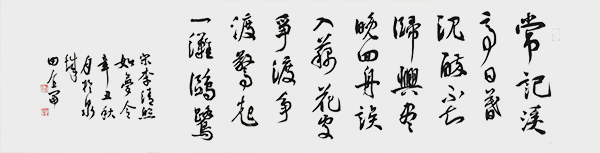 常記溪
亭日暮
沈醉不知
歸興盡
晚回舟誤
入藕花處
爭渡爭
渡驚起
一灘鷗鷺
宋李清照
如夢令
辛丑秋
月於泉
城
田